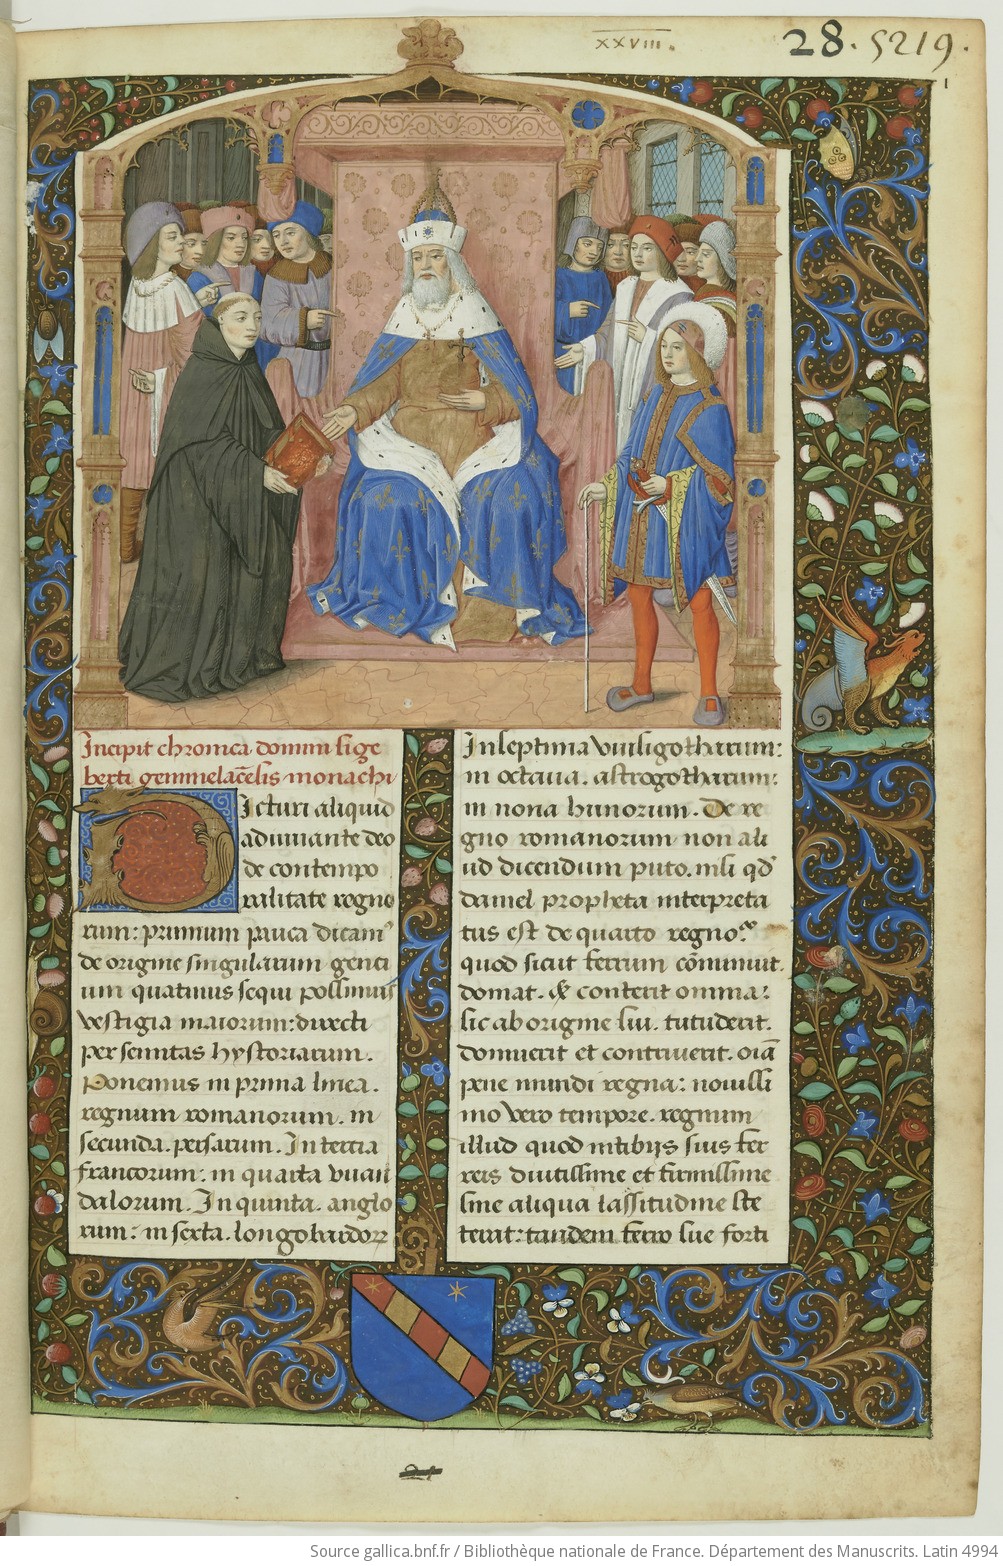 xxviii.
28. 5219.
1
Incipit chronica domini sige
berti gemmelacēsis monachi
Dicturi aliquid
adiuuante deo
de contempo
ralitate regno
rum: primum pauca dicam9
de origine singularum genti
um quatinus sequi possimus
vestigia maiorum: directi
per semitas hystoriarum.
Ponemus in prima linea.
regnum romanorum. in
secunda. persarum. In tertia
francorum: in quarta vuan
dalorum. In quinta. anglo
rum: in sexta. longobardorꝝ
In septima vuisigotharum:
in octaua. astrogotharum:
in nona hunorum. De re
gno romanorum non ali
ud dicendum puto. nisi qđ
daniel propheta interpreta
tus est de quarto regno:
quod sicut ferrum cōminuit.
domat. & conterit omnia:
sic ab origine sui. tutuderit.
domuerit et contriuerit. oīa
pene mundi regna: nouissi
mo vero tempore. regnum
illud quod nitibus suis fer
reis diutissime et firmissime
sine aliqua lassitudine ste
terat: tandem ferro sue forti
Source gallica.bnf.fr / Bibliothèque nationale de France. Département des Manuscrits. Latin 4994